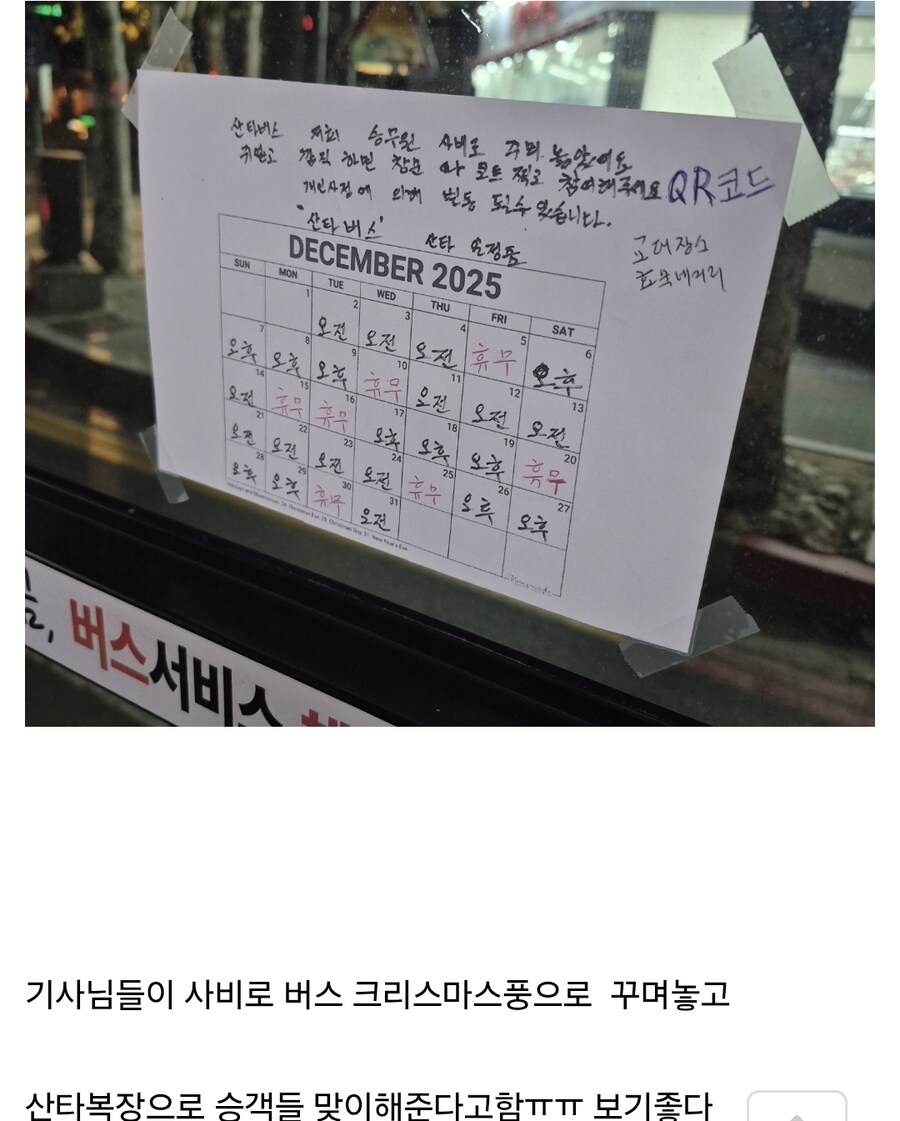 산타버스 저희 승무원 사비로 꾸며 놓았어요
귀엽고 깜찍 하면 와 코트 참여해주세요 QR코드
개인사정에 의해 변동 될수 있습니다.
"산타버스" 산타
고대장소
DECEMBER 2025
SUN MON TUE WED THU FRI SAT
1 2 3 4 5 6
오전 오전 오전 휴무 오후
7 8 9 10 11 12 13
오후 오후 오후 휴무 오전 오전 오전
14 15 16 17 18 19 20
오전 휴무 휴무 오후 오후 오후 휴무
21 22 23 24 25 26 27
오전 오전 오전 오전 휴무 오후 오후
28 29 30 31
오후 오후 휴무 오전
버스서비스
기사님들이 사비로 버스 크리스마스풍으로 꾸며놓고
산타복장으로 승객들 맞이해준다고함ㅠㅠ 보기좋다